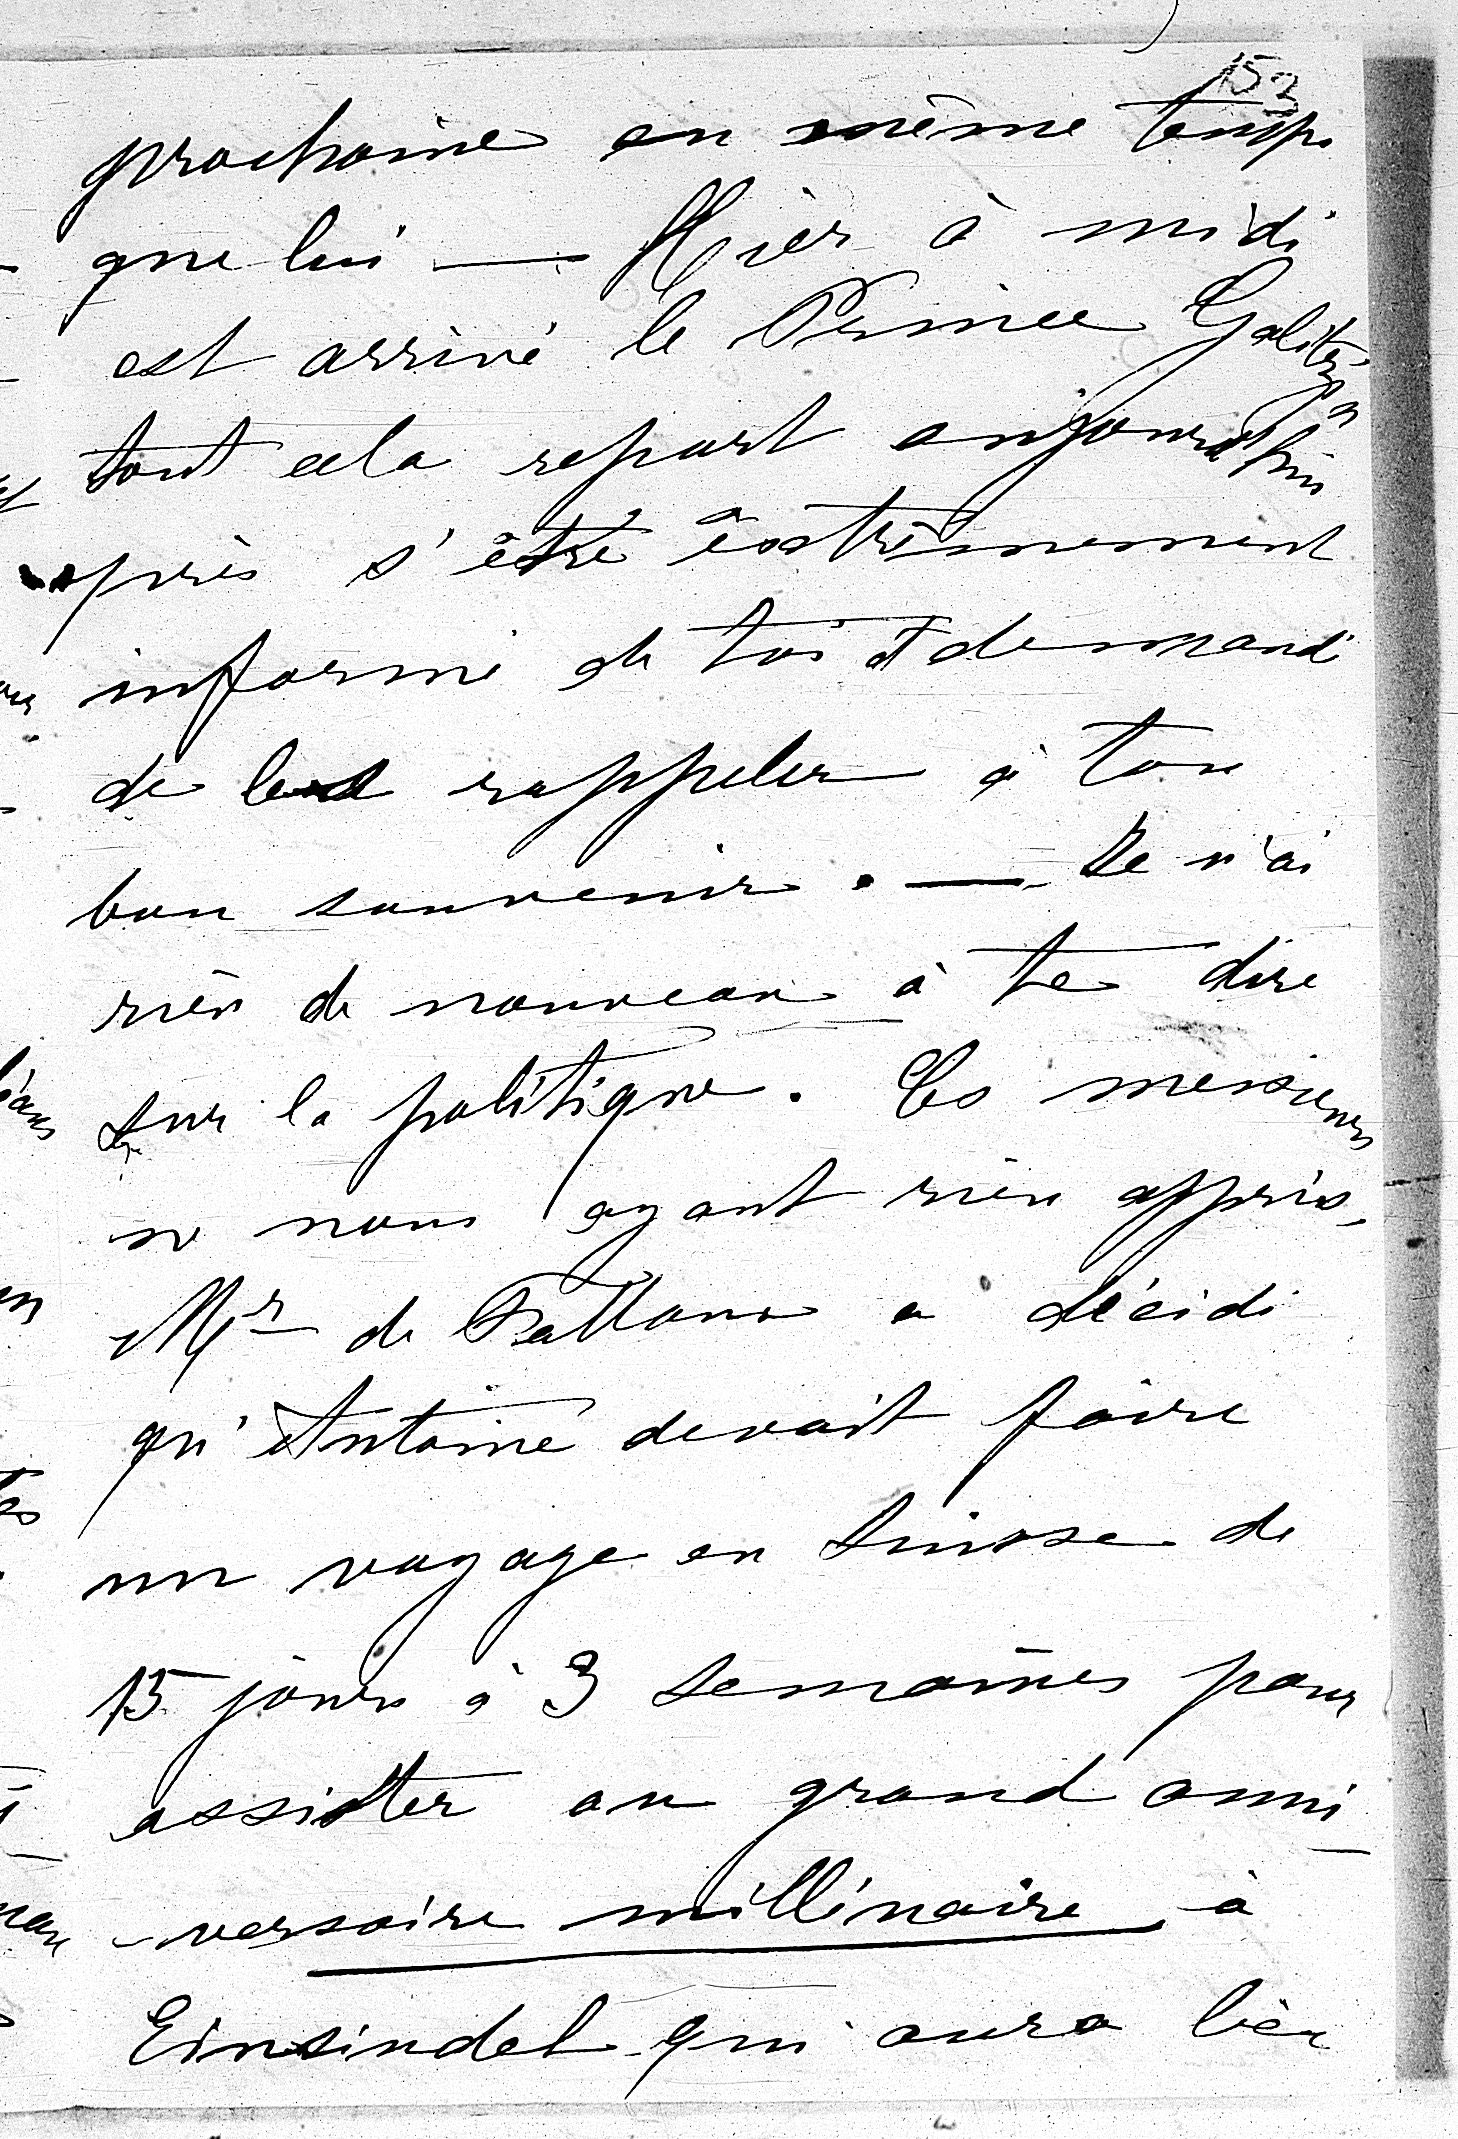 153
prochaine en même temps
que lui — Hier à midi
est arrivé le Prince Galitzin
tout cela repart aujourd'hui
après s'être extrêmement
informé de toi et demandé
de les rappeler à ton
bon souvenir. — Je n'ai
rien de nouveau à te dire
sur la politique. Ces messieurs
ne nous ayant rien appris,
Mr de a décidé
qu'Antoine devait faire
un voyage en Suisse de
15 jours à 3 semaines pour
assister au grand anni-
-versaire millénaire à
Einsindel qui aura lieu